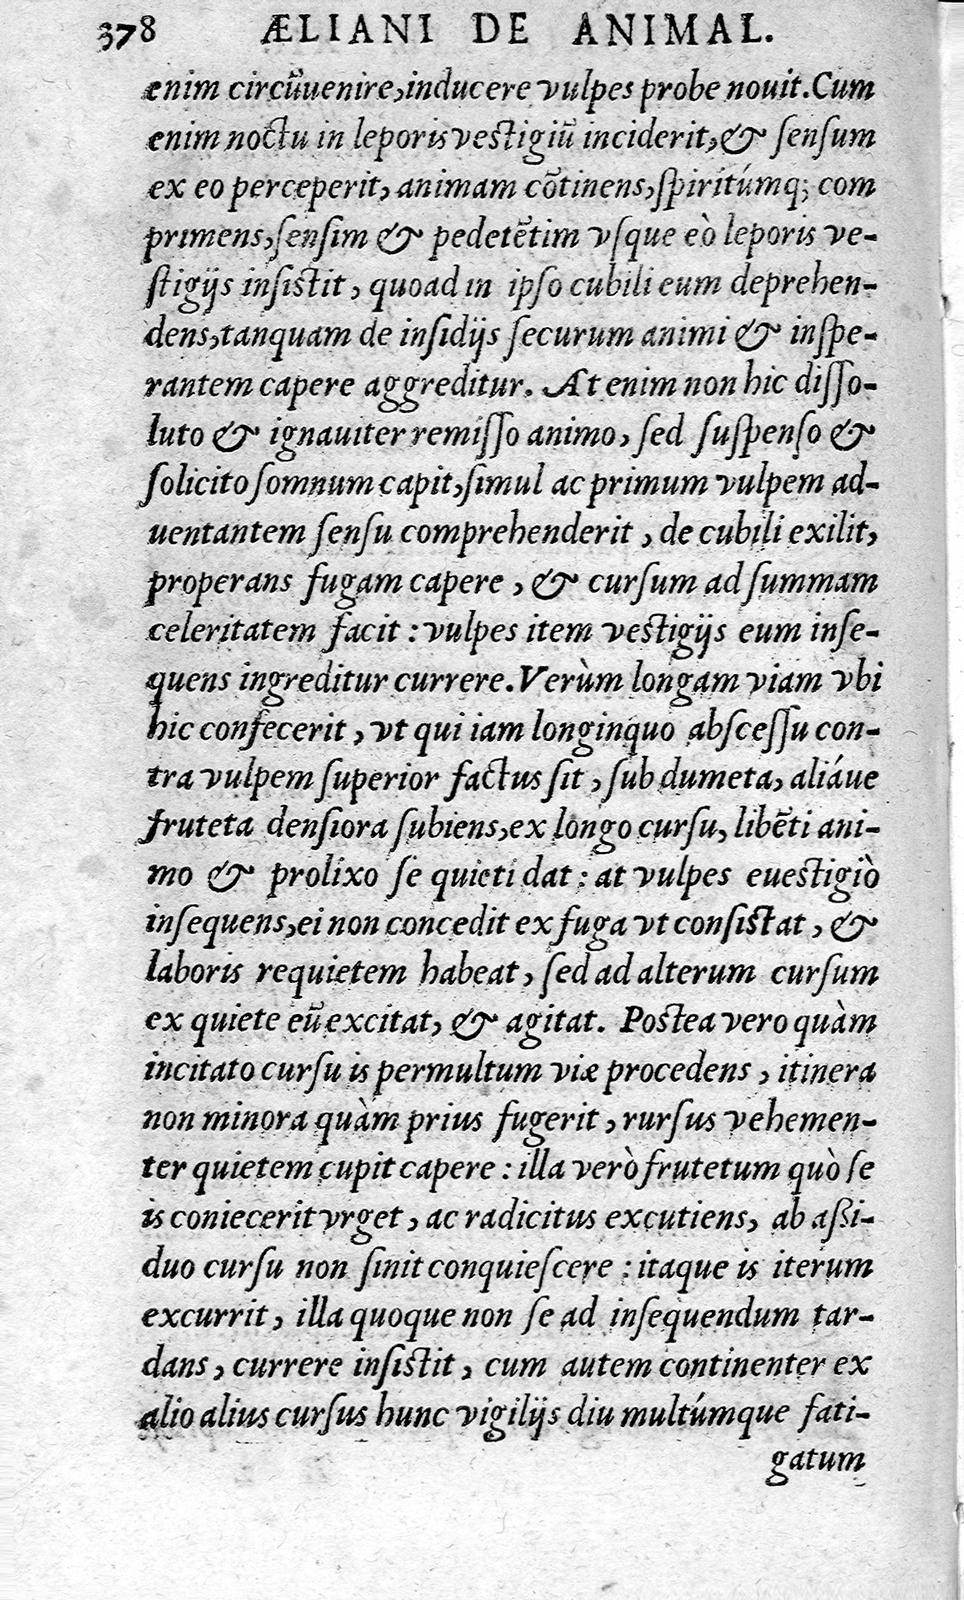 378 ÆLIANI DE ANIMAL.
enim circũuenire, inducere vulpes probe nouit. Cum
enim noctu in leporis vestigiũ inciderit, & sensum
ex eo perceperit, animam cõtinens, spiritúmq; com
primens, sensim & pedetẽtim vsque eò leporis ve-
stigijs insistit, quoad in ipso cubili eum deprehen-
dens, tanquam de insidijs securum animi & inspe-
rantem capere aggreditur. At enim non hic disso-
luto & ignauiter remisso animo, sed suspenso &
solicito somnum capit, simul ac primum vulpem ad-
uentantem sensu comprehenderit, de cubili exilit,
properans fugam capere, & cursum ad summam
celeritatem facit: vulpes item vestigijs eum inse-
quens ingreditur currere. Verùm longam viam vbi
hic confecerit, vt qui iam longinquo abscessu con-
tra vulpem superior factus sit, sub dumeta, aliáue
fruteta densiora subiens, ex longo cursu, libẽti ani-
mo & prolixo se quieti dat: at vulpes euestigiò
insequens, ei non concedit ex fuga vt consistat, &
laboris requietem habeat, sed ad alterum cursum
ex quiete eũ excitat, & agitat. Postea vero quàm
incitato cursu is permultum viæ procedens, itinera
non minora quàm prius fugerit, rursus vehemen-
ter quietem cupit capere: illa verò frutetum quò se
is coniecerit vrget, ac radicitus excutiens, ab aßi-
duo cursu non sinit conquiescere: itaque is iterum
excurrit, illa quoque non se ad insequendum tar-
dans, currere insistit, cum autem continenter ex
alio alius cursus hunc vigilijs diu multúmque fati-
gatum